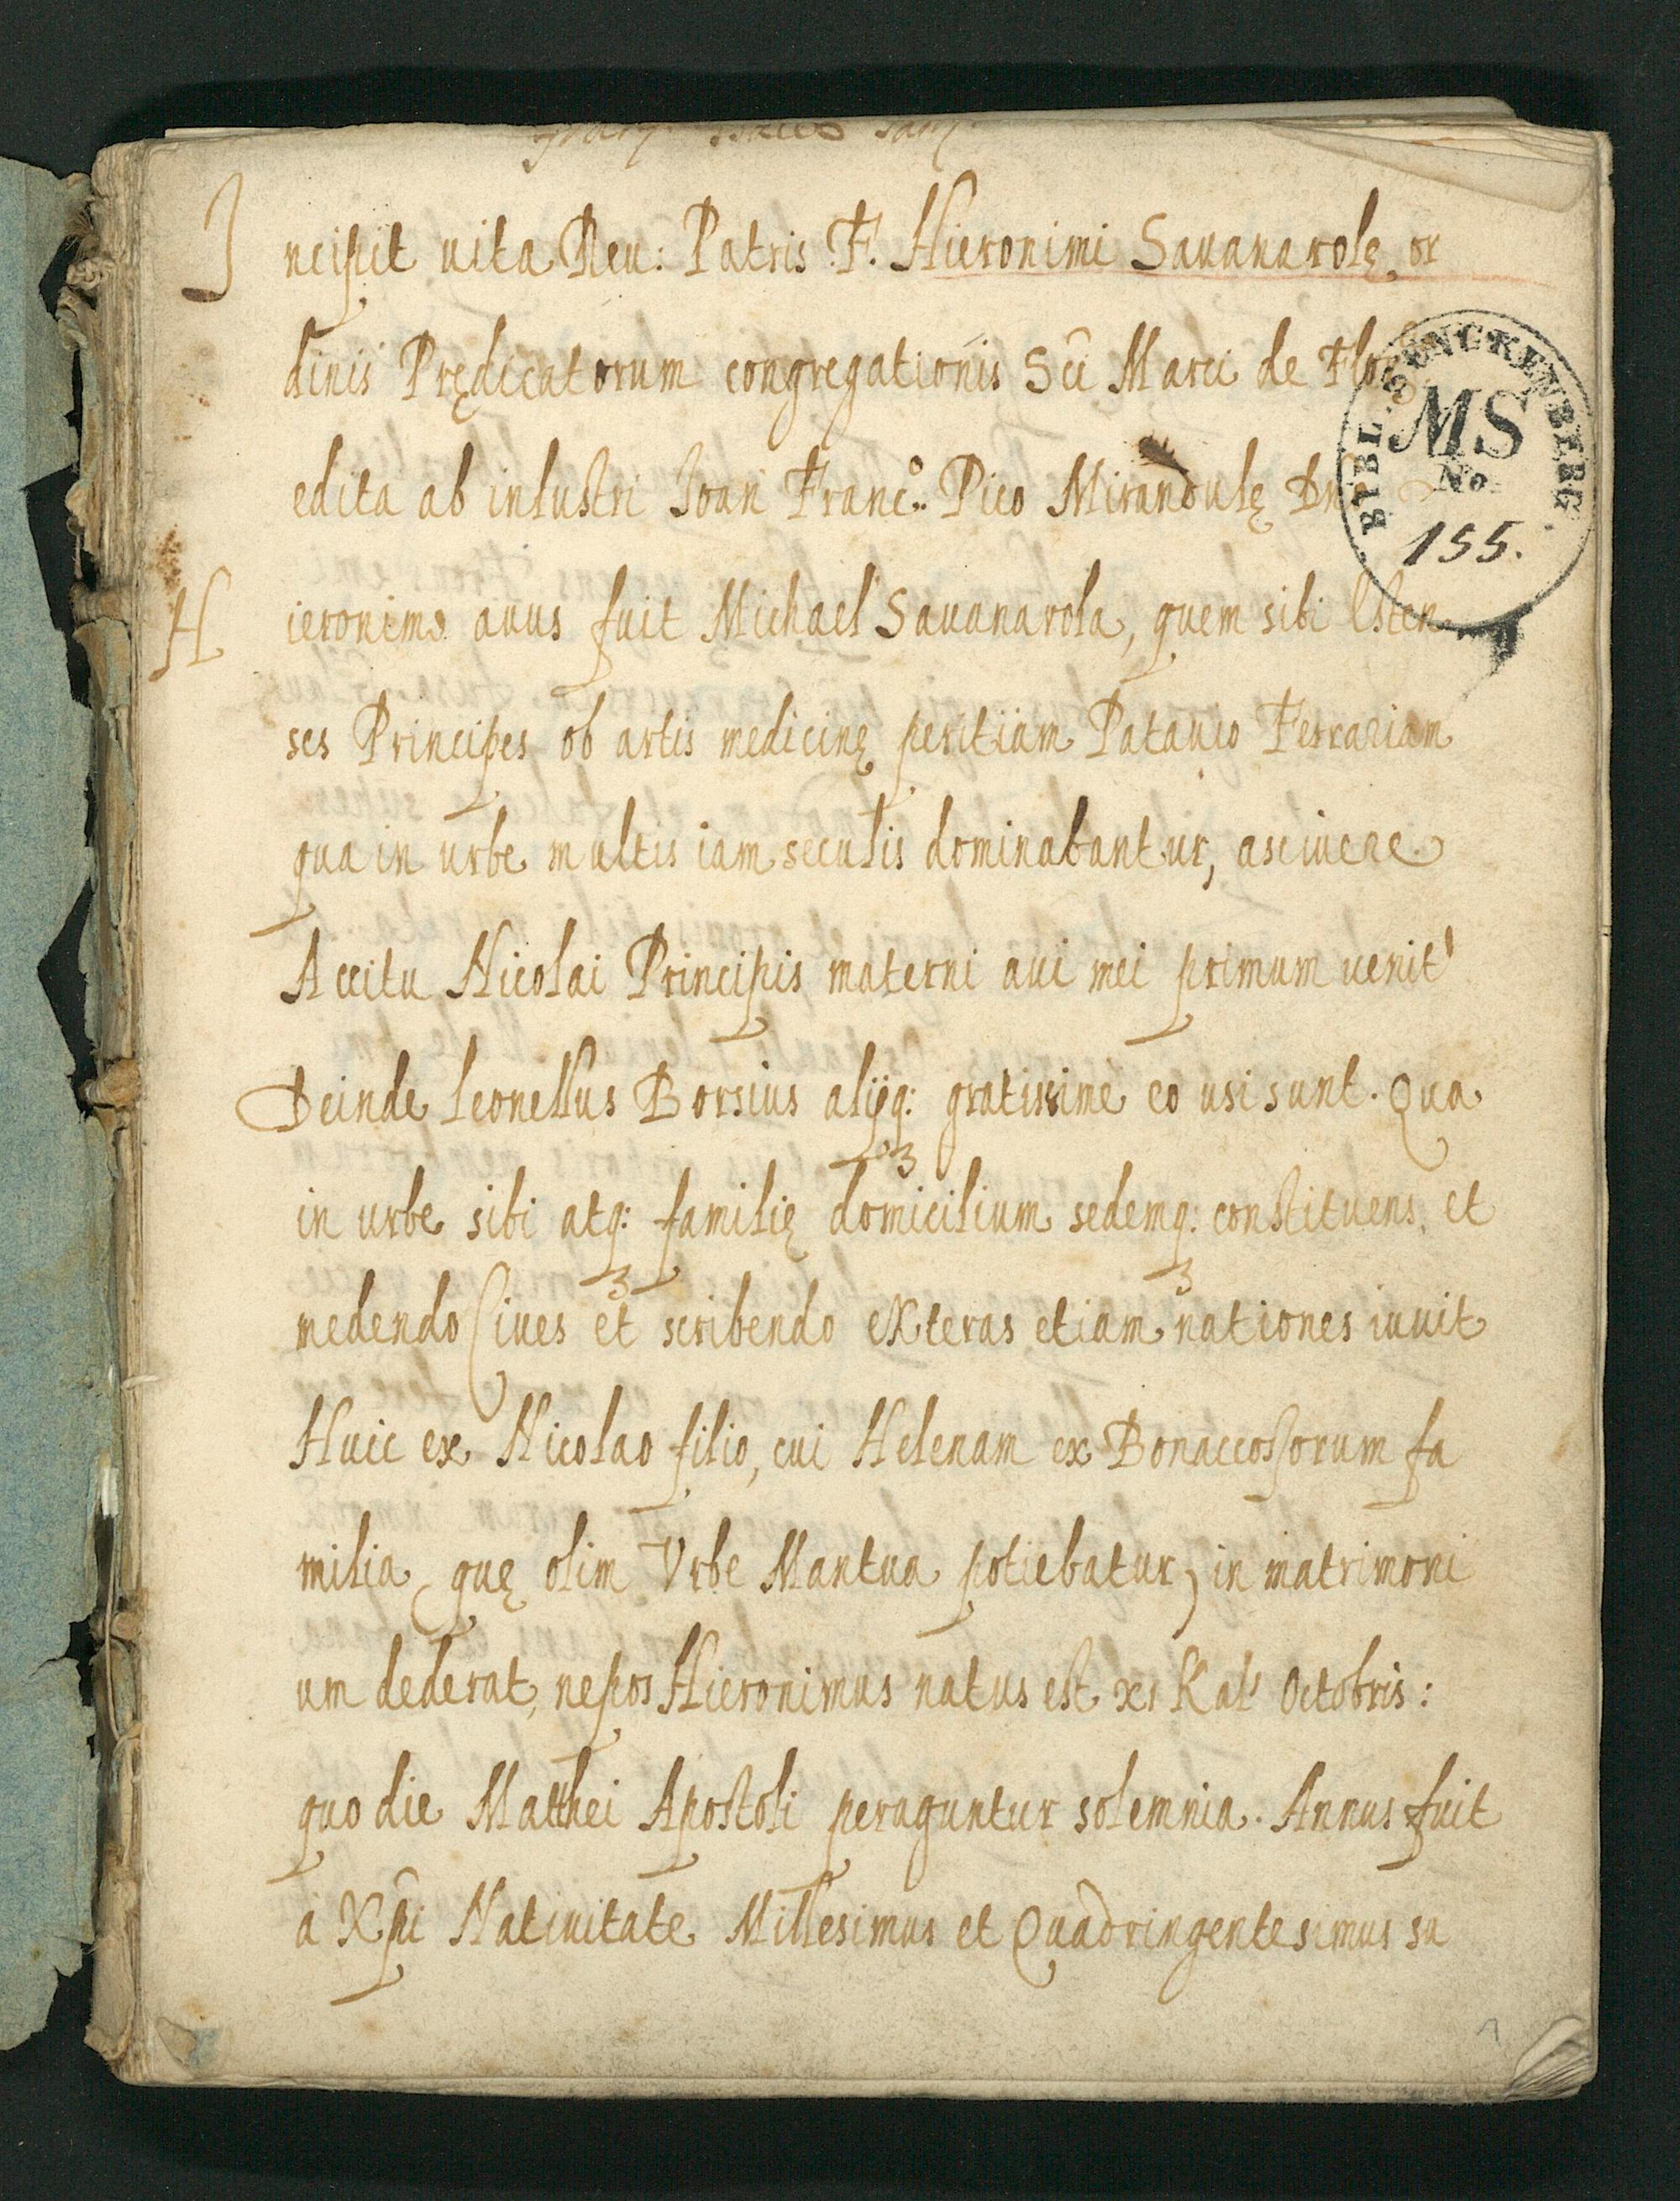 Incipit uita Reu: Patris F. Hieronimi Sauanarolę or
dinis Prędicatorum congregationis Sc̃i Marci de
edita ab inlustri Ioan̄ Franc.º Pico Mirandulę
Hieronimo auus fuit Michael Sauanarola, quem sibi Esten
ses Principes ob artis medicinę peritiam Patauio Ferrariam
qua in urbe multis iam seculis dominabantur, asciuere
Accitu Nicolai Principis materni aui mei primum uenit
Deinde Leonellus Borsius alijq: gratissime eo usi sunt. Qua
in urbe sibi atq: familię domicilium sedemq: constituens, et
medendo Ciues et scribendo exteras etiam nationes iuuit
Huic ex Nicolao filio, cui Helenam ex Bonaccossorum fa
milia (quę olim Vrbe Mantua potiebatur) in matrimoni
um dederat, nepos Hieronimus natus est xi Kal' Octobris:
quo die Matthei Apostoli peraguntur solemnia. Annus fuit
a Xp̃i Natiuitate Millesimus et Quadringentesimus su
BIBL. SENCKENBERG.
MS
No.
155.
1